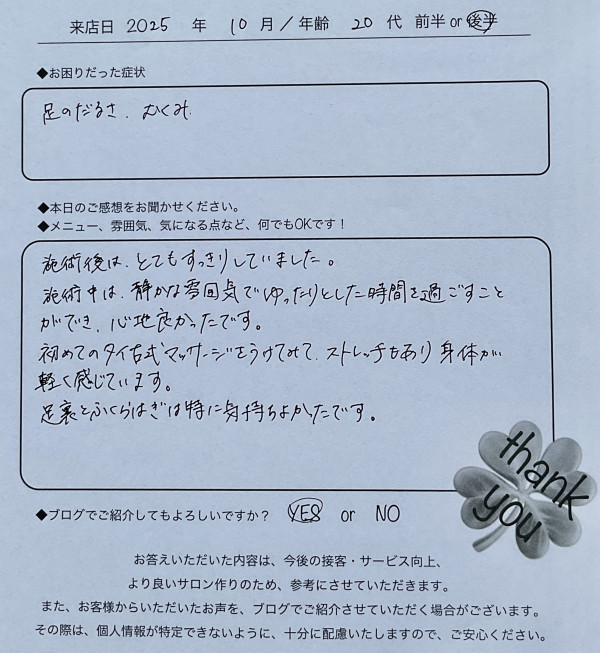 来店日 2025 年 10 月/年齢 20 代 前半 or 後半
◆お困りだった症状
足のだるさ、むくみ
◆本日のご感想をお聞かせください。
◆メニュー、雰囲気、気になる点など、何でもOKです！
施術後は、とてもすっきりしていました。
施術中は、静かな雰囲気でゆったりとした時間を過ごすこと
ができ、心地良かったです。
初めてのタイ古式マッサージをうけてみて、ストレッチもあり身体が
軽く感じています。
足裏とふくらはぎは特に気持ちよかったです。
thank
you
◆ブログでご紹介してもよろしいですか？ YES or NO
お答えいただいた内容は、今後の接客・サービス向上、
より良いサロン作りのため、参考にさせていただきます。
また、お客様からいただいたお声を、ブログでご紹介させていただく場合がございます。
その際は、個人情報が特定できないように、十分に配慮いたしますので、ご安心ください。